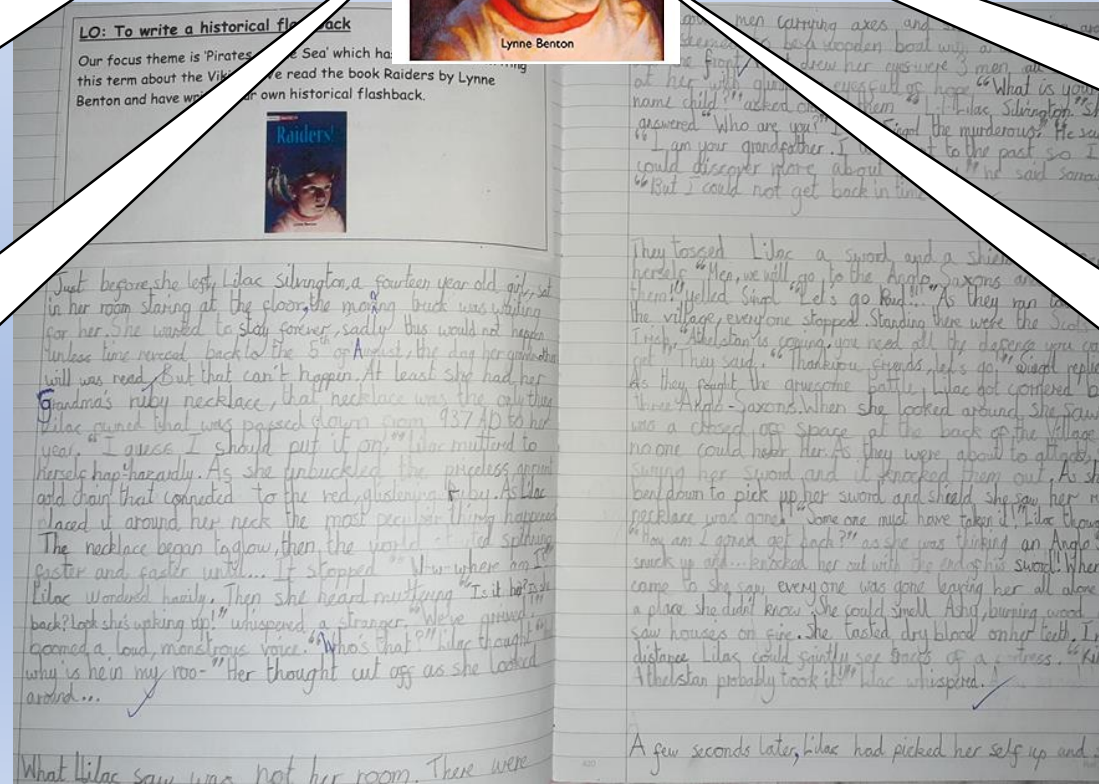 Lynne Benton
LO: To write a historical fl ck
Our focus theme is 'Pirates e Sea' which ha
this term about the Vik ve read the book Raiders by Lynne
Benton and have wri r own historical flashback.
Raiders!
Just before she left, Lilac Silvington, a fourteen year old girl, sat
in her room staring at the floor, the moving truck was waiting
for her. She wanted to stay forever, sadly this would not happen
unless time back to the 5th of August, the day her
will was read. But that can't happen. At least she had her
Grandma's ruby necklace, that necklace was the only thing
Lilac owned that was passed down from 937 AD to her
year. "I guess I should put it on," Lilac muttered to
herself hap-hazardly. As she unbuckled the priceless
gold chain that connected to the red, glistening ruby. As Lilac
placed it around her neck the most peculiar thing happened
The necklace began to glow, then the world spinning
faster and faster until... It stopped "W-w-where am I"
Lilac wondered hazily. Then she heard muttering "Is it her? Is she
back? Look she's waking up!" whispered a stranger. "We've arived!!"
boomed a loud, monstrous voice. "Who's that?" Lilac thought
why is he in my roo-" Her thought cut off as she looked
around...
What Lilac saw was not her room. There were
men carrying axes and
be a wooden boat with a
front drew her eyes were 3 men
at her with eyes full of hope "What is you
name child?" asked them Lilac Silvington." Sh
answered "Who are you? the murderous." He sa
"I am your grandfather. I to the past so I
could discover more about he said
"But i could not get back in time
They tossed Lilac a sword, and a
herself "Men, we will go to the Anglo Saxons an
them!" yelled "Let's go Raid!!" As they ran
the village, everyone stopped. Standing there were the Scots
Irish, "Athelstan is coming, you need all the defense you
get They said. "Thankyou friends, let's go"
As they fought the gruesome battle, Lilac got cornered b
three Anglo-Saxons. When she looked around she saw
was a closed off space at the back of the Village
no one could her. As they were about to attack,
swung her sword and it knocked them out. As sh
bent down to pick up her sword and shield she saw her
necklace was gone! "Some one must have taken it!" Lilac thoug
"How am I gonna get back?" as she was thinking an Anglo
snuck up and... knocked her out with the end of his sword! When
came to she saw everyone was gone leaving her all alone
a place she didn't know. She could smell Ash, burning wood
saw houses on fire. She tasted dry blood on her teeth. I
distance Lilac could faintly see of a fortress. "Ki
Athelstan probably took it!" Lilac whispered.
A few seconds later, Lilac had picked her self up and